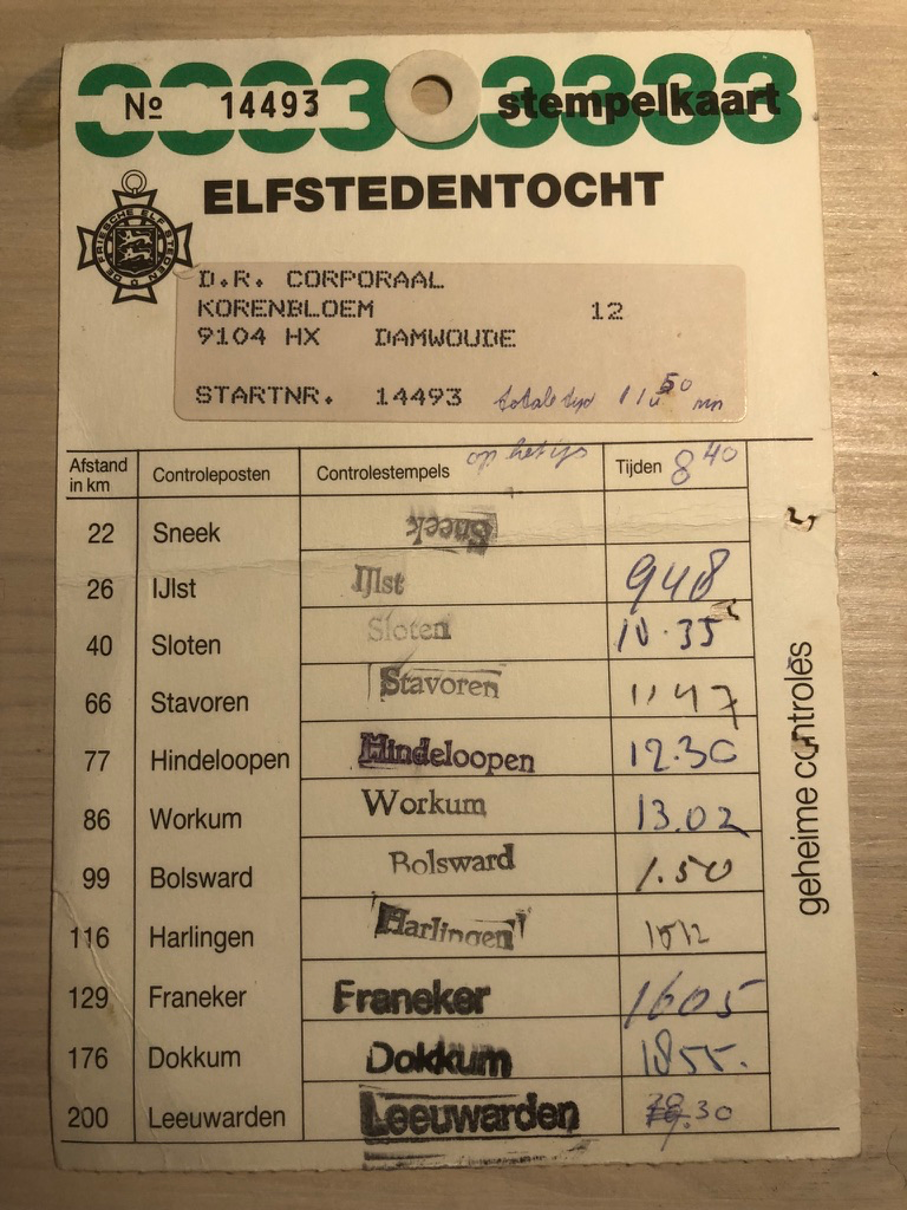 No 14493 stempelkaart
ELFSTEDENTOCHT
DE FRIESCHE ELF STEDEN
D.R. CORPORAAL
KORENBLOEM 12
9104 HX DAMWOUDE
STARTNR. 14493 totale tijd 11u 50 mn
op het ijs
Afstand in km Controleposten Controlestempels Tijden 8 40
22 Sneek Sneek
26 IJlst IJlst 948
40 Sloten Sloten 10.35
66 Stavoren Stavoren 11 47
77 Hindeloopen Hindeloopen 12.30
86 Workum Workum 13.02
99 Bolsward Bolsward 1.50
116 Harlingen Harlingen
129 Franeker Franeker 1605
176 Dokkum Dokkum 1855.
200 Leeuwarden Leeuwarden .30
geheime controles